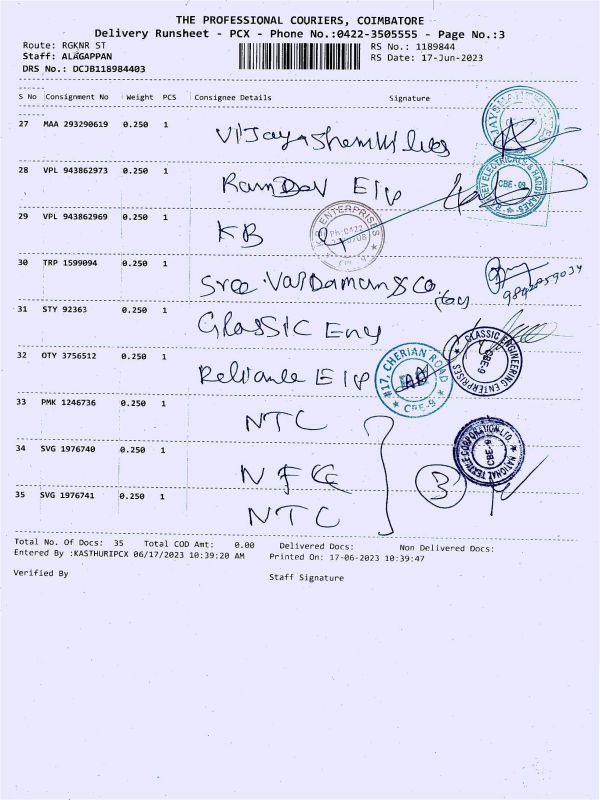 THE PROFESSIONAL COURIERS, COIMBATORE
Delivery Runsheet - PCX - Phone No.:0422-3505555 - Page No.:3
Route: RGKNR ST RS No.: 1189844
Staff: ALAGAPPAN RS Date: 17-Jun-2023
DRS No.: DCJB118984403
S No Consignment No Weight PCS Consignee Details Signature
27 MAA 293290619 0.250 1
28 VPL 943862973 0.250 1 Ram Dev E/p
CBE-09
29 VPL 943862969 0.250 1 KB
ENTERPRISES
Ph:0422
30 TRP 1599094 0.250 1 Sree Vardaman & Co
31 STY 92363 0.250 1 Classic Eng
CLASSIC ENGINEERING ENTERPRISES
CBE-9
32 OTY 3756512 0.250 1 Reliance E/p
#17, CHERIAN ROAD
CBE-9
33 PMK 1246736 0.250 1 NTC
34 SVG 1976740 0.250 1 3
NATIONAL TEXTILE CORPORATION LTD.
CBE-9
35 SVG 1976741 0.250 1 NTC
Total No. Of Docs: 35 Total COD Amt: 0.00 Delivered Docs: Non Delivered Docs:
Entered By :KASTHURIPCX 06/17/2023 10:39:20 AM Printed On: 17-06-2023 10:39:47
Verified By Staff Signature